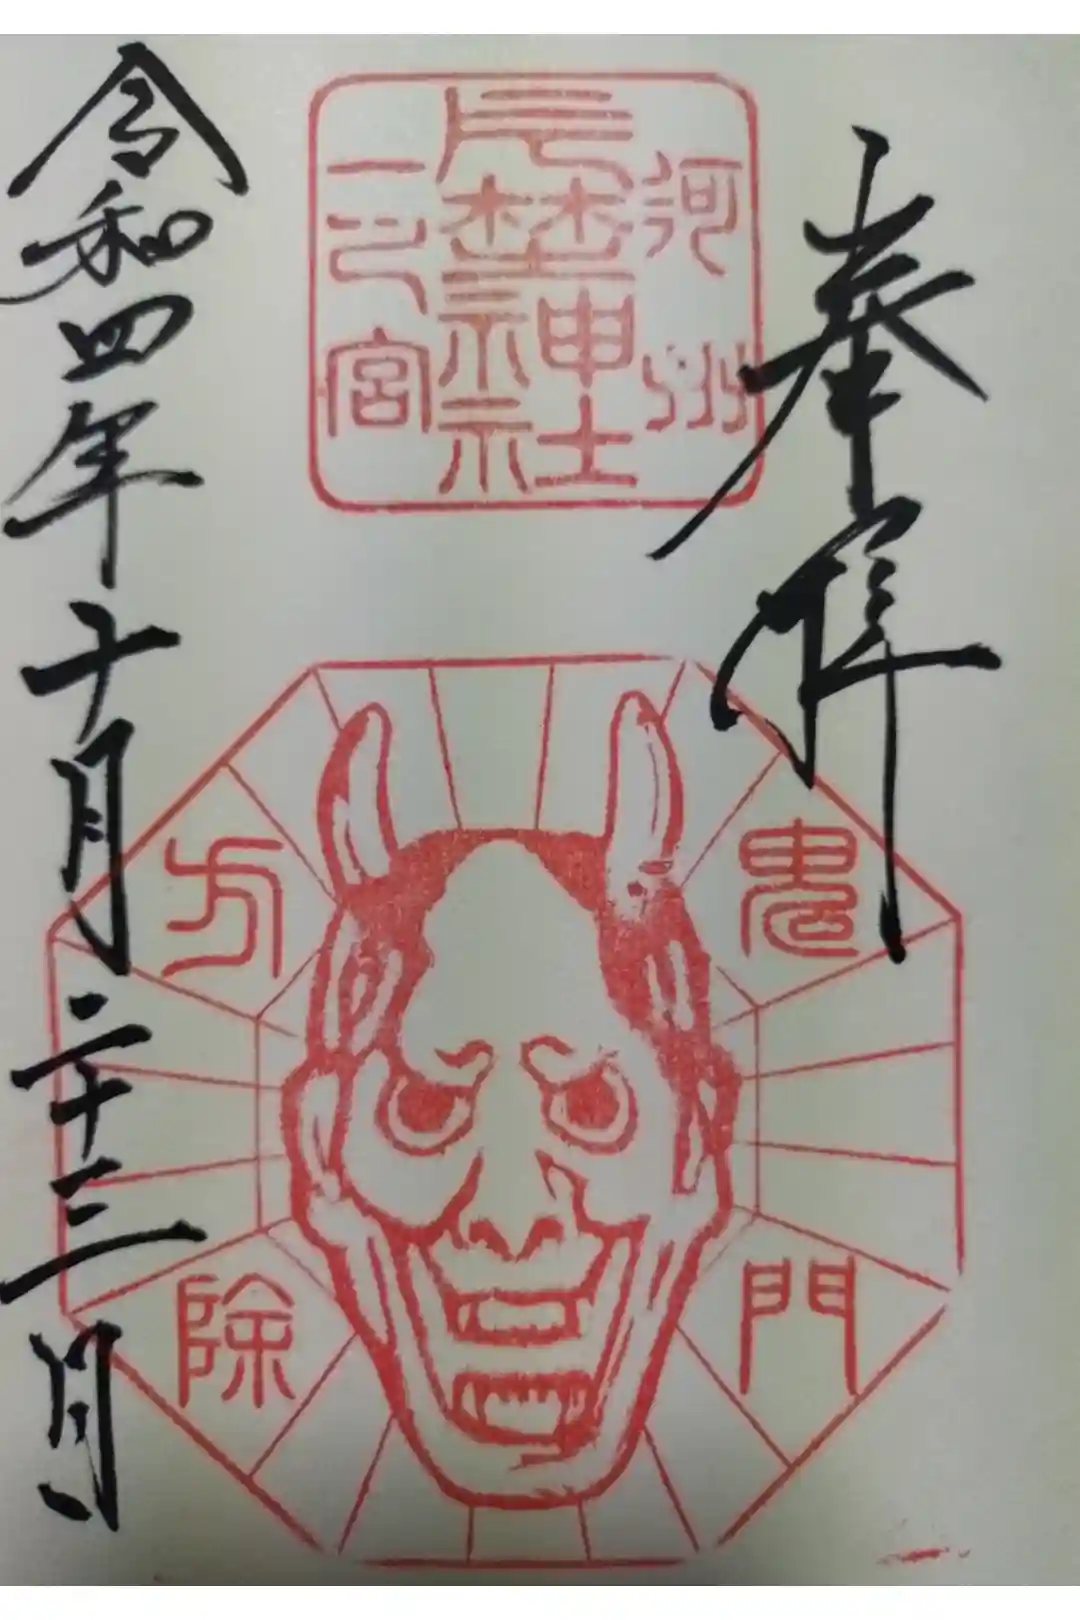 奉拝
河州
片埜神社
一之宮
鬼門
方除
令和四年十月二十三日